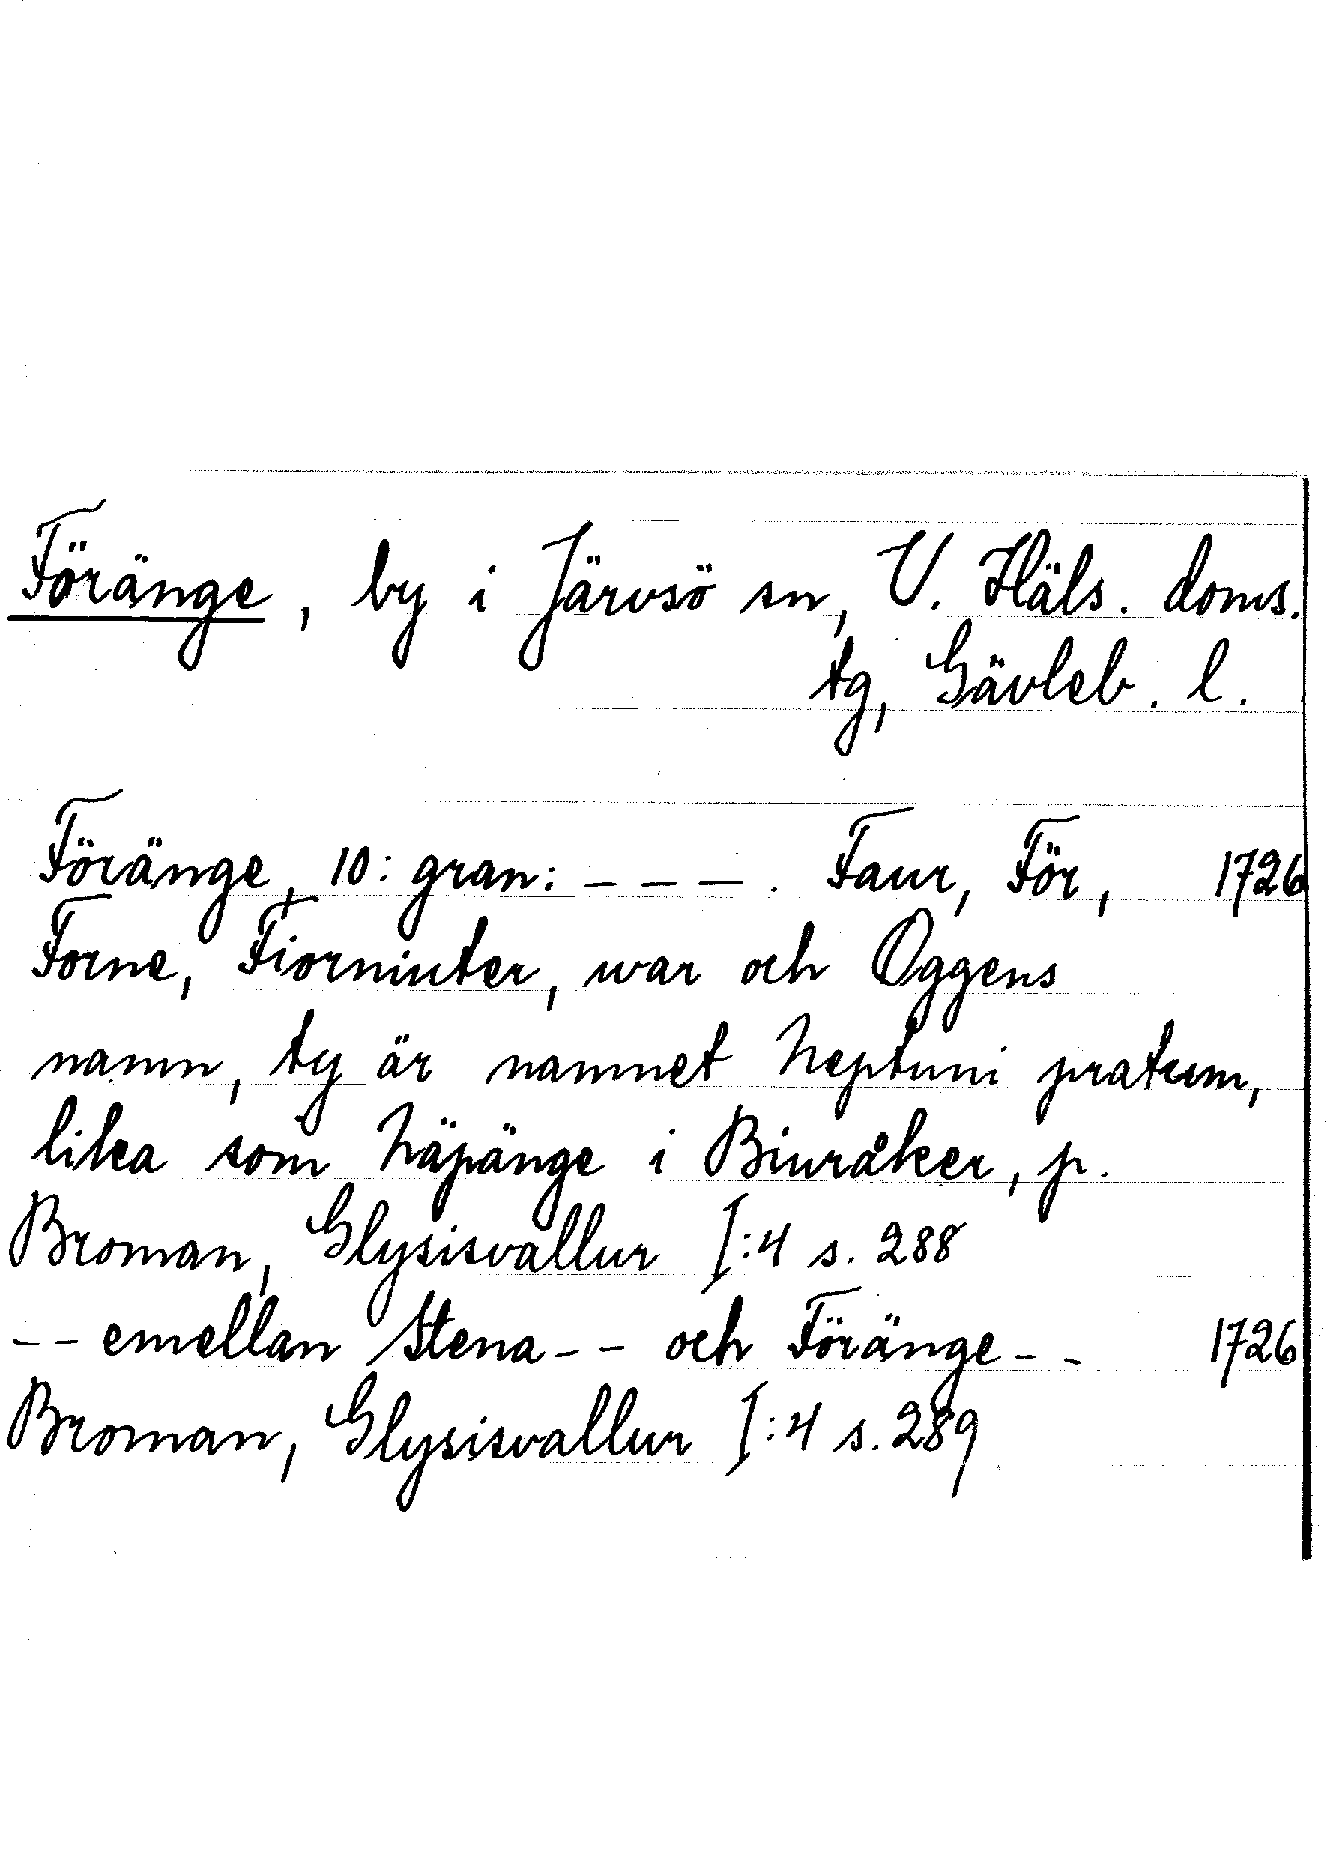 Föränge, by i Järvsö sn, V. Häls. doms.
tg, Gävleb. l.
Föränge, 10: gran: - - - . Faur, För, 1726
Forne, Fiorninter, war och Oggens
namn, ty är namnet Neptuni pratum,
lika som Näpänge i Biuråker, p.
Broman, Glysisvallur I:4 s. 288
- - emellan Stena - - och Föränge - - 1726
Broman, Glysisvallur I:4 s. 289